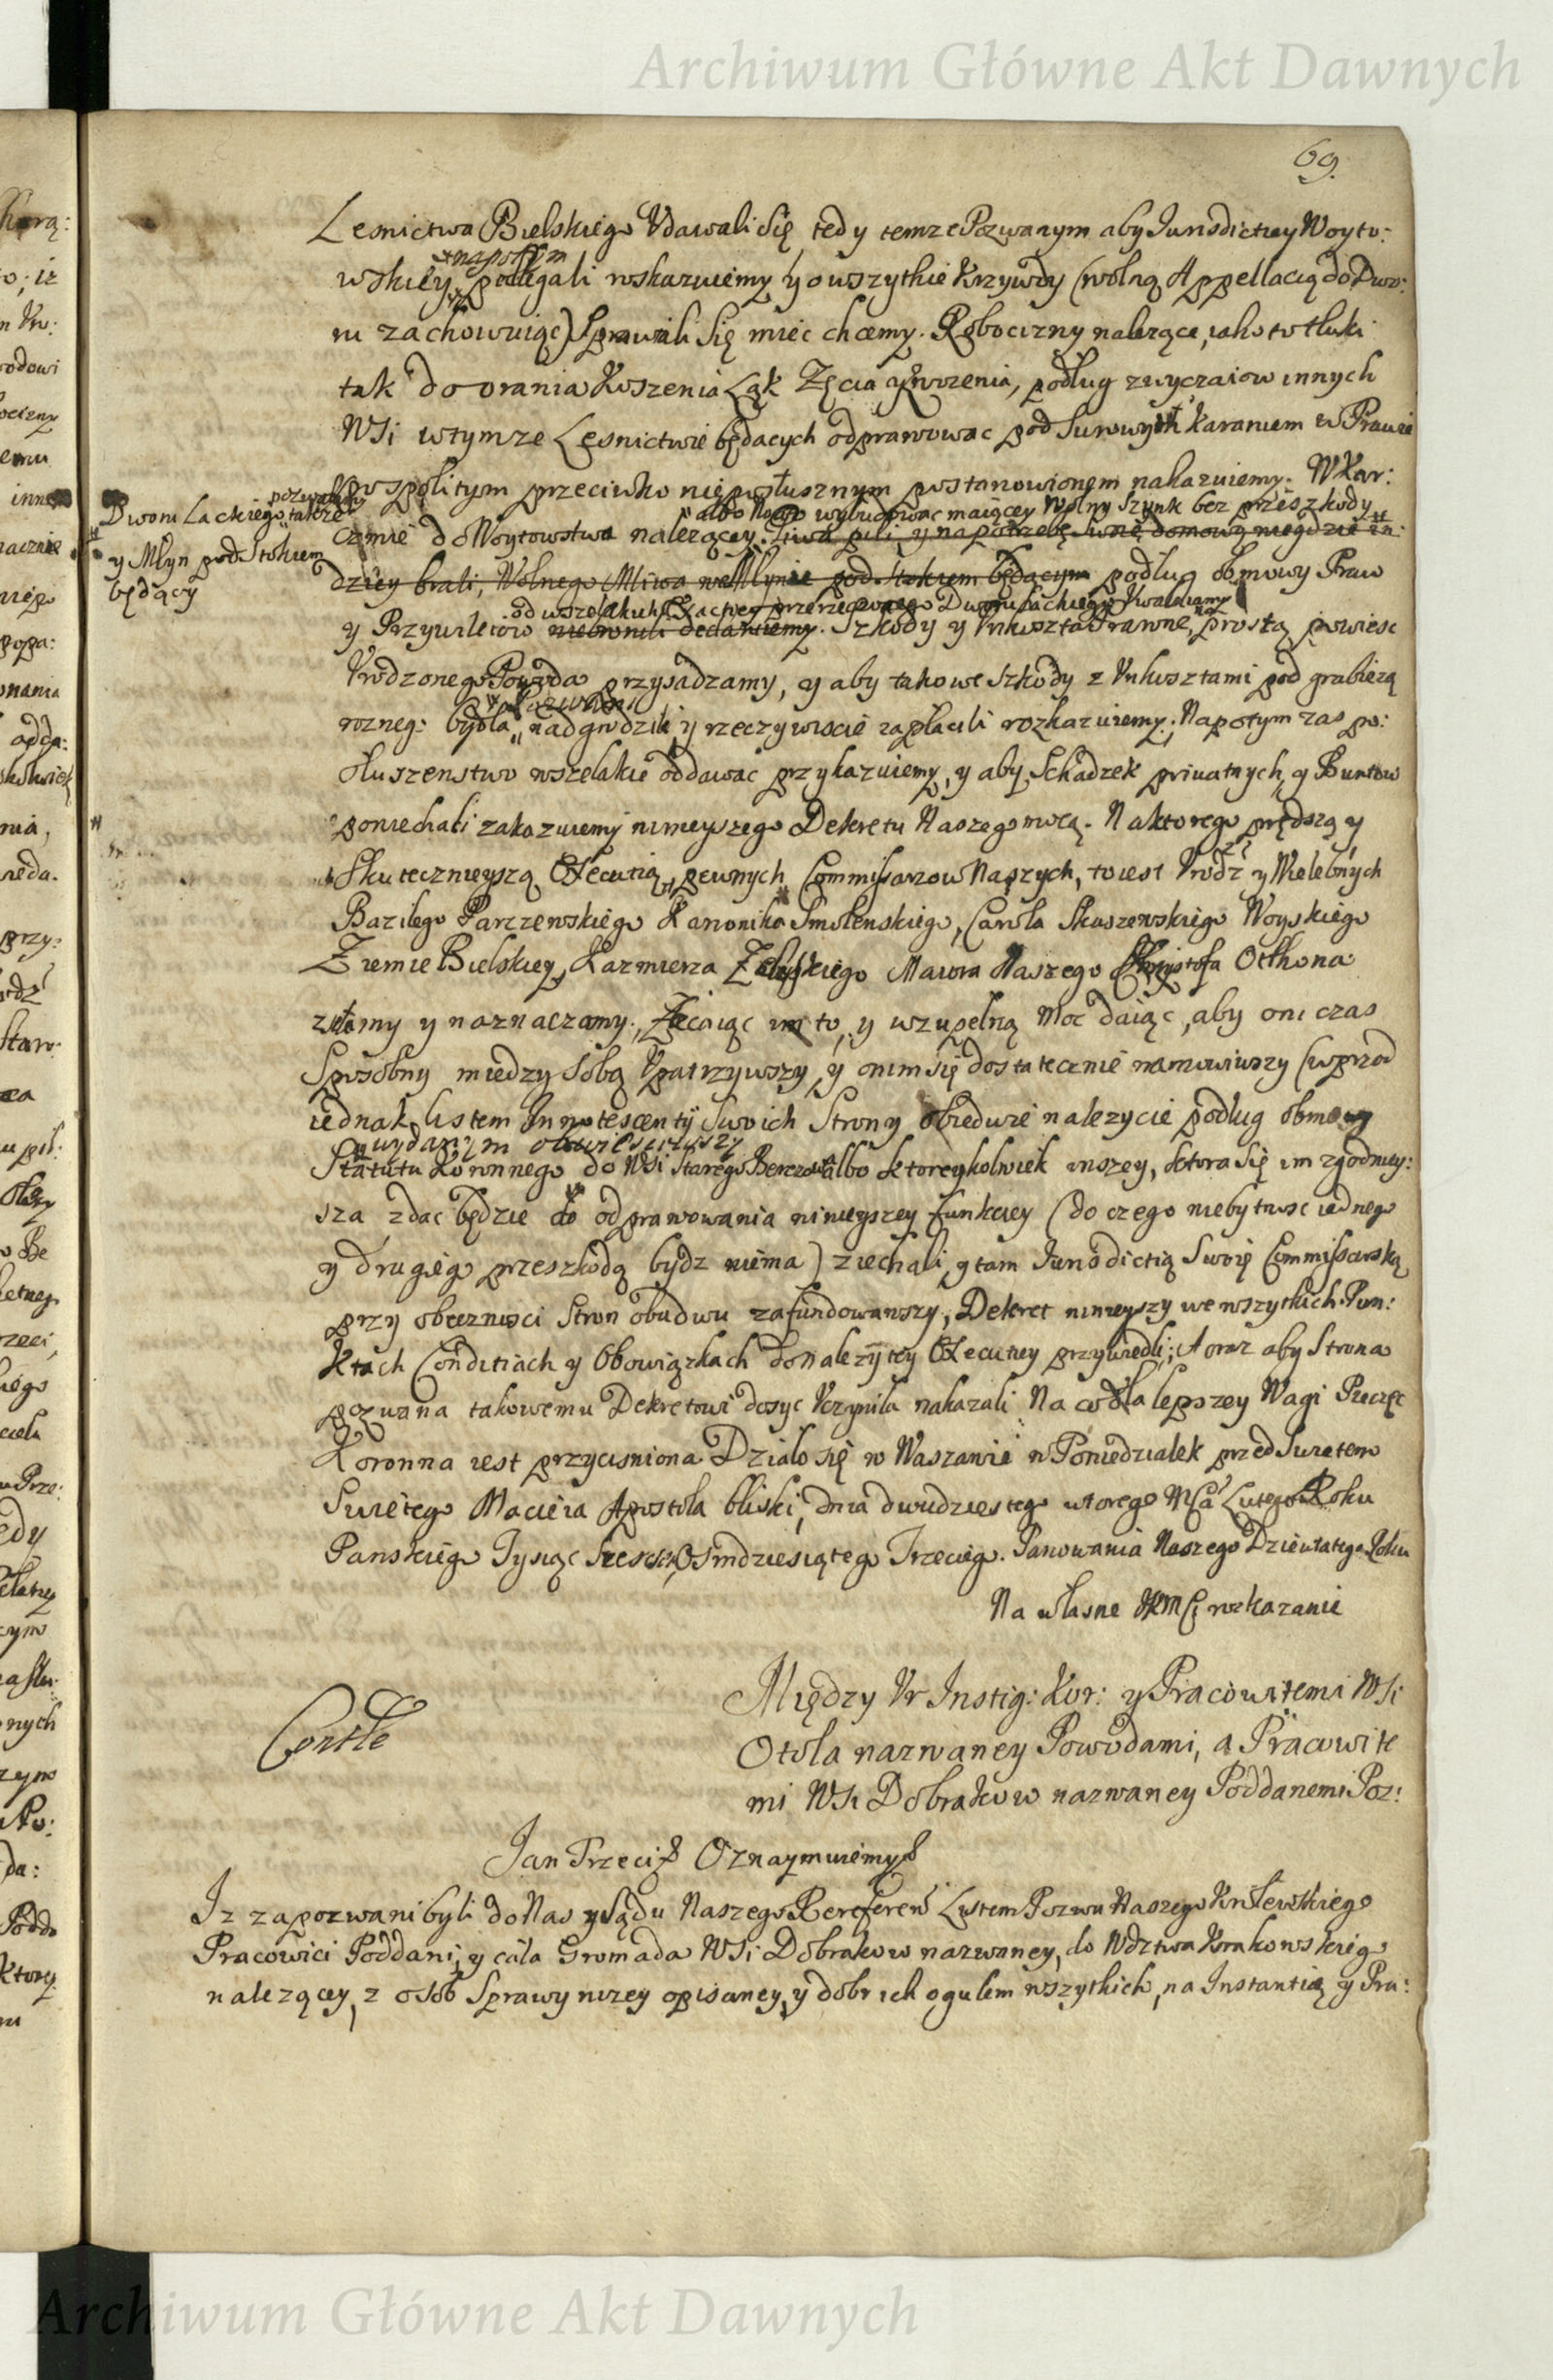 Archiwum Główne Akt Dawnych
69.
Lesnictwa Bielskiego Udawali się tedy temze Pozwanym aby Iurisdictiey Woyto:
napotym
wskiey podlegali wskazuiemy y o wszytkie Krzywdy (wolną Appellacią do Dwo:
ru zachowuiąc) Sprawili się miec chcemy. Robocizny nalezące, iako to tłuki
tak do orania Koszenia Łąk Zęcia Grozenia, podług zwyczaiow innych
WSi wtymze Lesnictwie będących odprawowac pod surowym karaniem w Prawie
pospolitym przeciwko nieposłusznym postanowionem nakazuiemy. W Kar:
albo Nową wybudowac maiącey Wolny Szynk bez przeszkody
czmie do Woytowstwa nalezącey. Piwa pili, y na potrzebę swoię domową niegdzie in:
pozwanego
Dworu Lackiego także
y Młyn pod Stokiem
będący
dziey brali, Wolnego Mliwa we Młynie pod Stokiem będącym podług obmowy Praw
od wszelakich przerzeczonego Dworu Lackiego Uwalniamy
y Przywileiow niebronili declaruiemy. Szkody y Unkoszta Prawne, prostą powiesc
Urodzonego Powoda przysądzamy, y aby takowe szkody z Unkosztami pod grabiezą
Pozwani
rozneg: bydła nadgrodzili y rzeczywiscie zapłacili rozkazuiemy; Napotym zas po:
słuszenstwo wszelakie oddawac przykazuiemy, y aby Schadzek priuatnych y Buntow
poniechali zakazuiemy ninieyszego Dekretu Naszego mocą. Na ktorego prędszą y
skutecznieyszą Executią, pewnych Commissarzow Naszych, to iest Urodz y Wielebnych
Bazilego Parczewskiego Kanonika Smolenskiego, Carola Skaszewskiego Woyskiego
Ziemie Bielskiey, Kazmierza Zaleskiego Maiora Naszego Chrystofa Otthona
zsełamy y naznaczamy. Zlecaiąc im to, y wzupełną Moc daiąc, aby oni czas
Sposobny miedzy sobą Upatrzywszy, y onim się dostatecznie namowiwszy (wprzod
iednak listem Innotescentÿ Swoich Strony obiedwie nalezycie podług obmowy
wydanym obwiesciwszy
Statutu Koronnego do WSi Starego Berezowa albo ktoreykolwiek inszey, ktora się im zgodniey:
sza zdac będzie do odprawowania ninieyszey funkciey (do czego niebytnosc iednego
y drugiego przeszkodą bydz niema) ziechali, y tam Iurisdictią Swoię Commissarską
przy obecznosci Stron obudwu zafundowawszy, Dekret ninieyszy we wszytkich Pun:
ktach Conditiach y Obowiązkach do nalezÿtey Executiey przywiedli; A oraz aby Strona
pozwana takowemu Dekretowi dosyc Uczyniła nakazali Na co dla lepszey Wagi Pieczęc
Koronna iest przycisniona Działo się w Warszawie w Poniedziałek przed Swietem
Swiętego Macieia Apostoła bliski, dnia dwudziestego wtorego MCa Lutego Roku
Panskiego Tysiąc Szescset Osmdziesiątego Trzeciego. Panowania Naszego Dziewiatego Roku
Na własne JKMCi rozkazanie
Contle
Między Ur Instig: Kor: y Pracowitemi WSi
Otola nazwaney Powodami, a Pracowite
mi WSi Dobrakow nazwaney Poddanemi Poz:
Jan Trzeci Oznaymuiemy
Iz zapozwani byli do Nas y Sądu Naszego Rereferen Listem Pozwu Naszego Krolewskiego
Pracowici Poddani, y cała Gromada WSi Dobrakow nazwaney, do Wdztwa Krakowskieg
nalezącey, z osob Sprawy nizey opisaney y dobr ich ogulem wszytkich, na Instantią y Pra:
Archiwum Główne Akt Dawnych